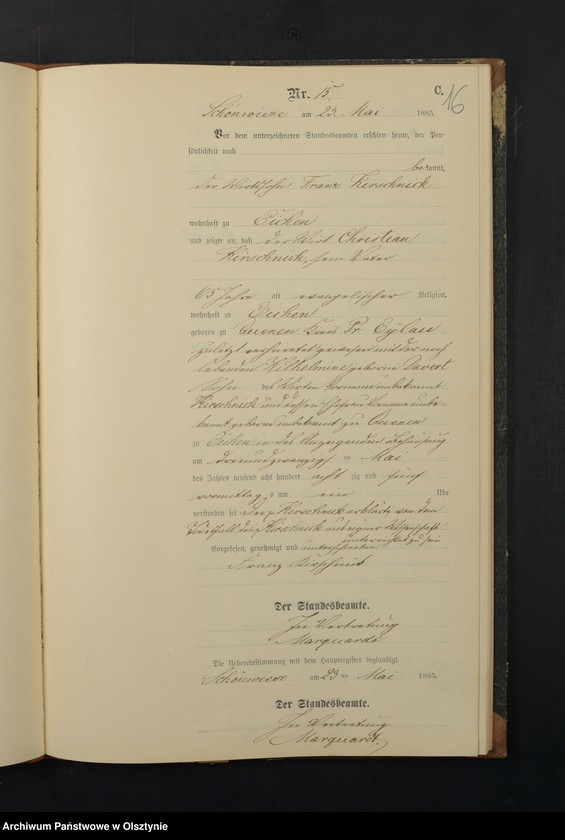 Nr. 15.
C.
16
Schönwiese am 23. Mai 1885.
Vor dem unterzeichneten Standesbeamten erschien heute, der Per-
sönlichkeit nach
bekannt,
der Wirtssohn Franz Kirschnick
wohnhaft zu Eichen
und zeigte an, daß der Wirt Christian
Kirschnick, sein Vater
65 Jahre alt evangelischer Religion,
wohnhaft zu Eichen
geboren zu Kreis Pr Eylau
zuletzt verheiratet gewesen mit der noch
lebenden Wilhelmine geborne
Sohn des Wirten Vorname unbekannt
Kirschnick und dessen Ehefrau Vorname unbe-
kannt geborne unbekannt zu
zu Eichen in des Anzeigenden Behausung
am dreiundzwanzigsten Mai
des Jahres tausend acht hundert achtzig und fünf
vormittags um ein Uhr
verstorben sei Franz Kirschnick erklärte von dem
aus eigner Wissenschaft
unterrichtet zu sein
Vorgelesen, genehmigt und unterschrieben
Franz Kirschnick
Der Standesbeamte.
In Vertretung
Marquardt
Die Uebereinstimmung mit dem Hauptregister beglaubigt.
Schönwiese am 23 ten Mai 1885.
Der Standesbeamte.
In Vertretung
Marquardt.
Archiwum Państwowe w Olsztynie